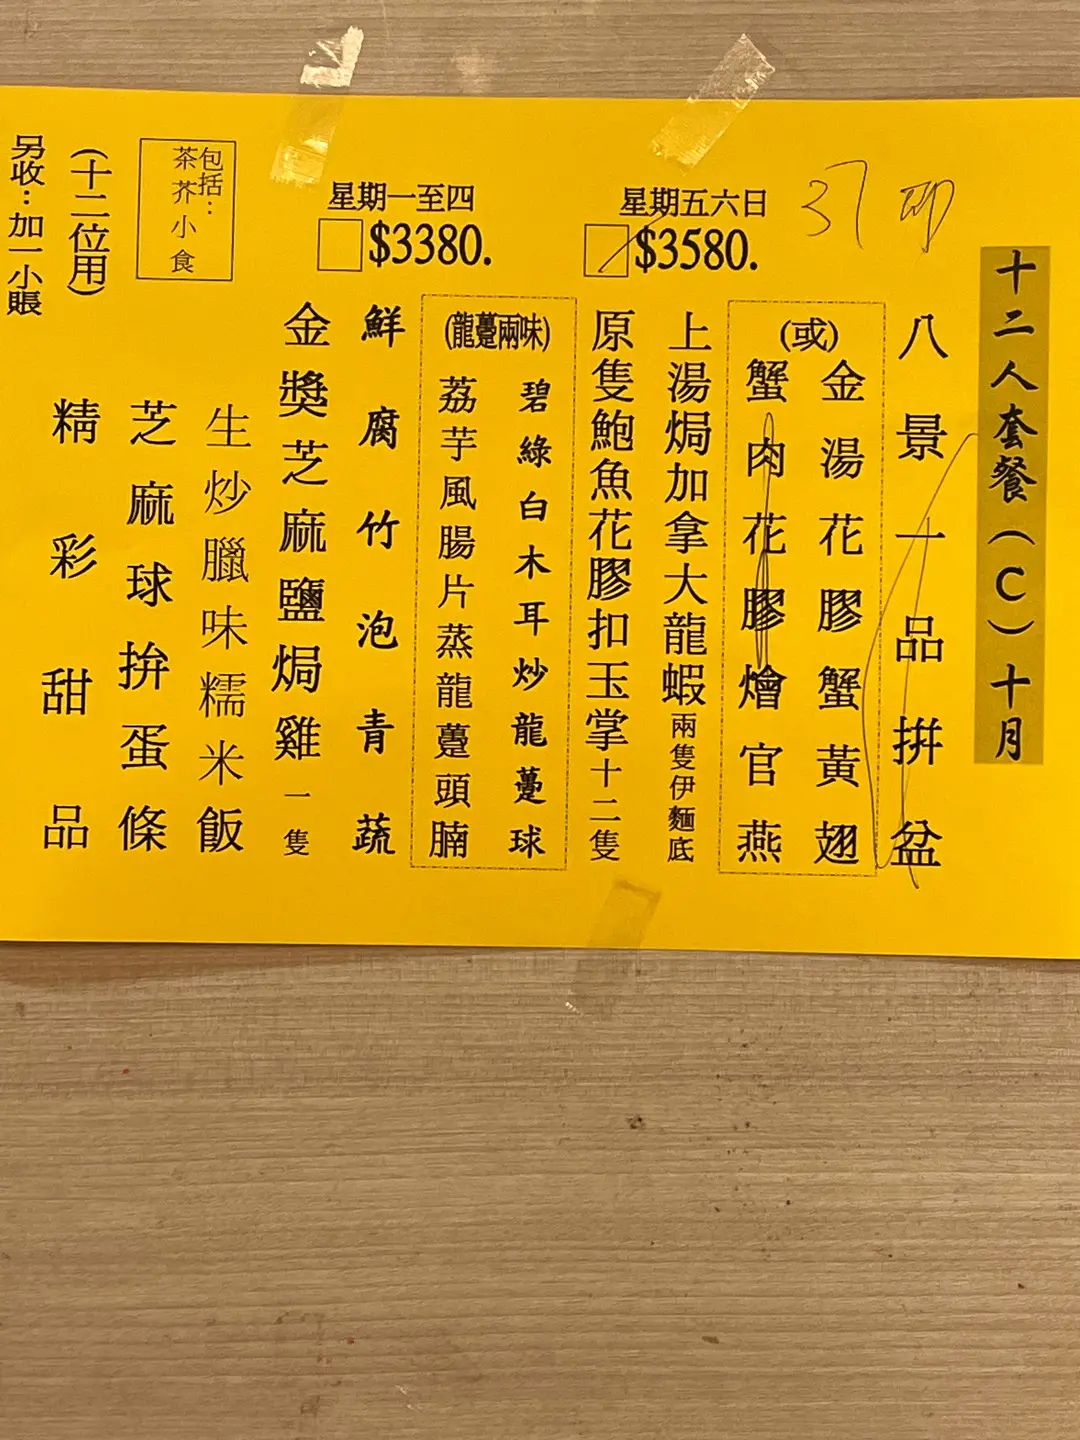 十二人套餐(C)十月
八景一品拼盆
(或)
金湯花膠蟹黃翅
蟹肉花膠燴官燕
上湯焗加拿大龍蝦兩隻伊麵底
原隻鮑魚花膠扣玉掌十二隻
(龍躉兩味)
碧綠白木耳炒龍躉球
荔芋風腸片蒸龍躉頭腩
鮮腐竹泡青蔬
金獎芝麻鹽焗雞一隻
生炒臘味糯米飯
芝麻球拚蛋條
精彩甜品
星期五六日
$3580.
星期一至四
$3380.
包括：
茶芥小食
(十二位用)
另收：加一小賬